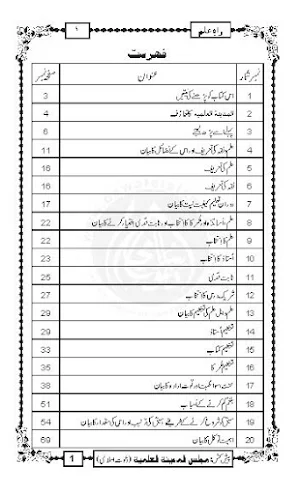 راہِ علم ۱
فہرست
نمبر شمار عنوان صفحہ نمبر
1 اس کتاب کو پڑھنے کی نیتیں 3
2 المدینۃ العلمیہ کا تعارف 4
3 پہلے اسے پڑھ لیجئے 6
4 علم وفقہ کی تعریف اور اس کے فضائل کا بیان 11
5 علم کی تعریف 16
6 فقہ کی تعریف 16
7 دوران تعلیم کیفیت نیت کا بیان 17
8 علم، اساتذہ اور شرکا کا انتخاب اور ثابت قدمی اختیار کرنے کا بیان 22
9 علم کا انتخاب 22
10 استاذ کا انتخاب 23
11 ثابت قدمی 25
12 شریک درس کا انتخاب 27
13 علم واہل علم کی تعظیم کا بیان 29
14 تعظیم استاذ 29
15 تعظیم کتاب 33
16 تعظیم شرکا 35
17 محنت، مواظبت اور قوت ارادہ کا بیان 38
18 بلغم کم کرنے کے اسباب 51
19 سبق کو شروع کرنے کے طریقے، سبق کی ترتیب اور اس کی مقدار کا بیان 54
20 اہمیت توکل کا بیان 69
پیش کش: مجلس المدینۃ العلمیۃ (دعوت اسلامی) 1